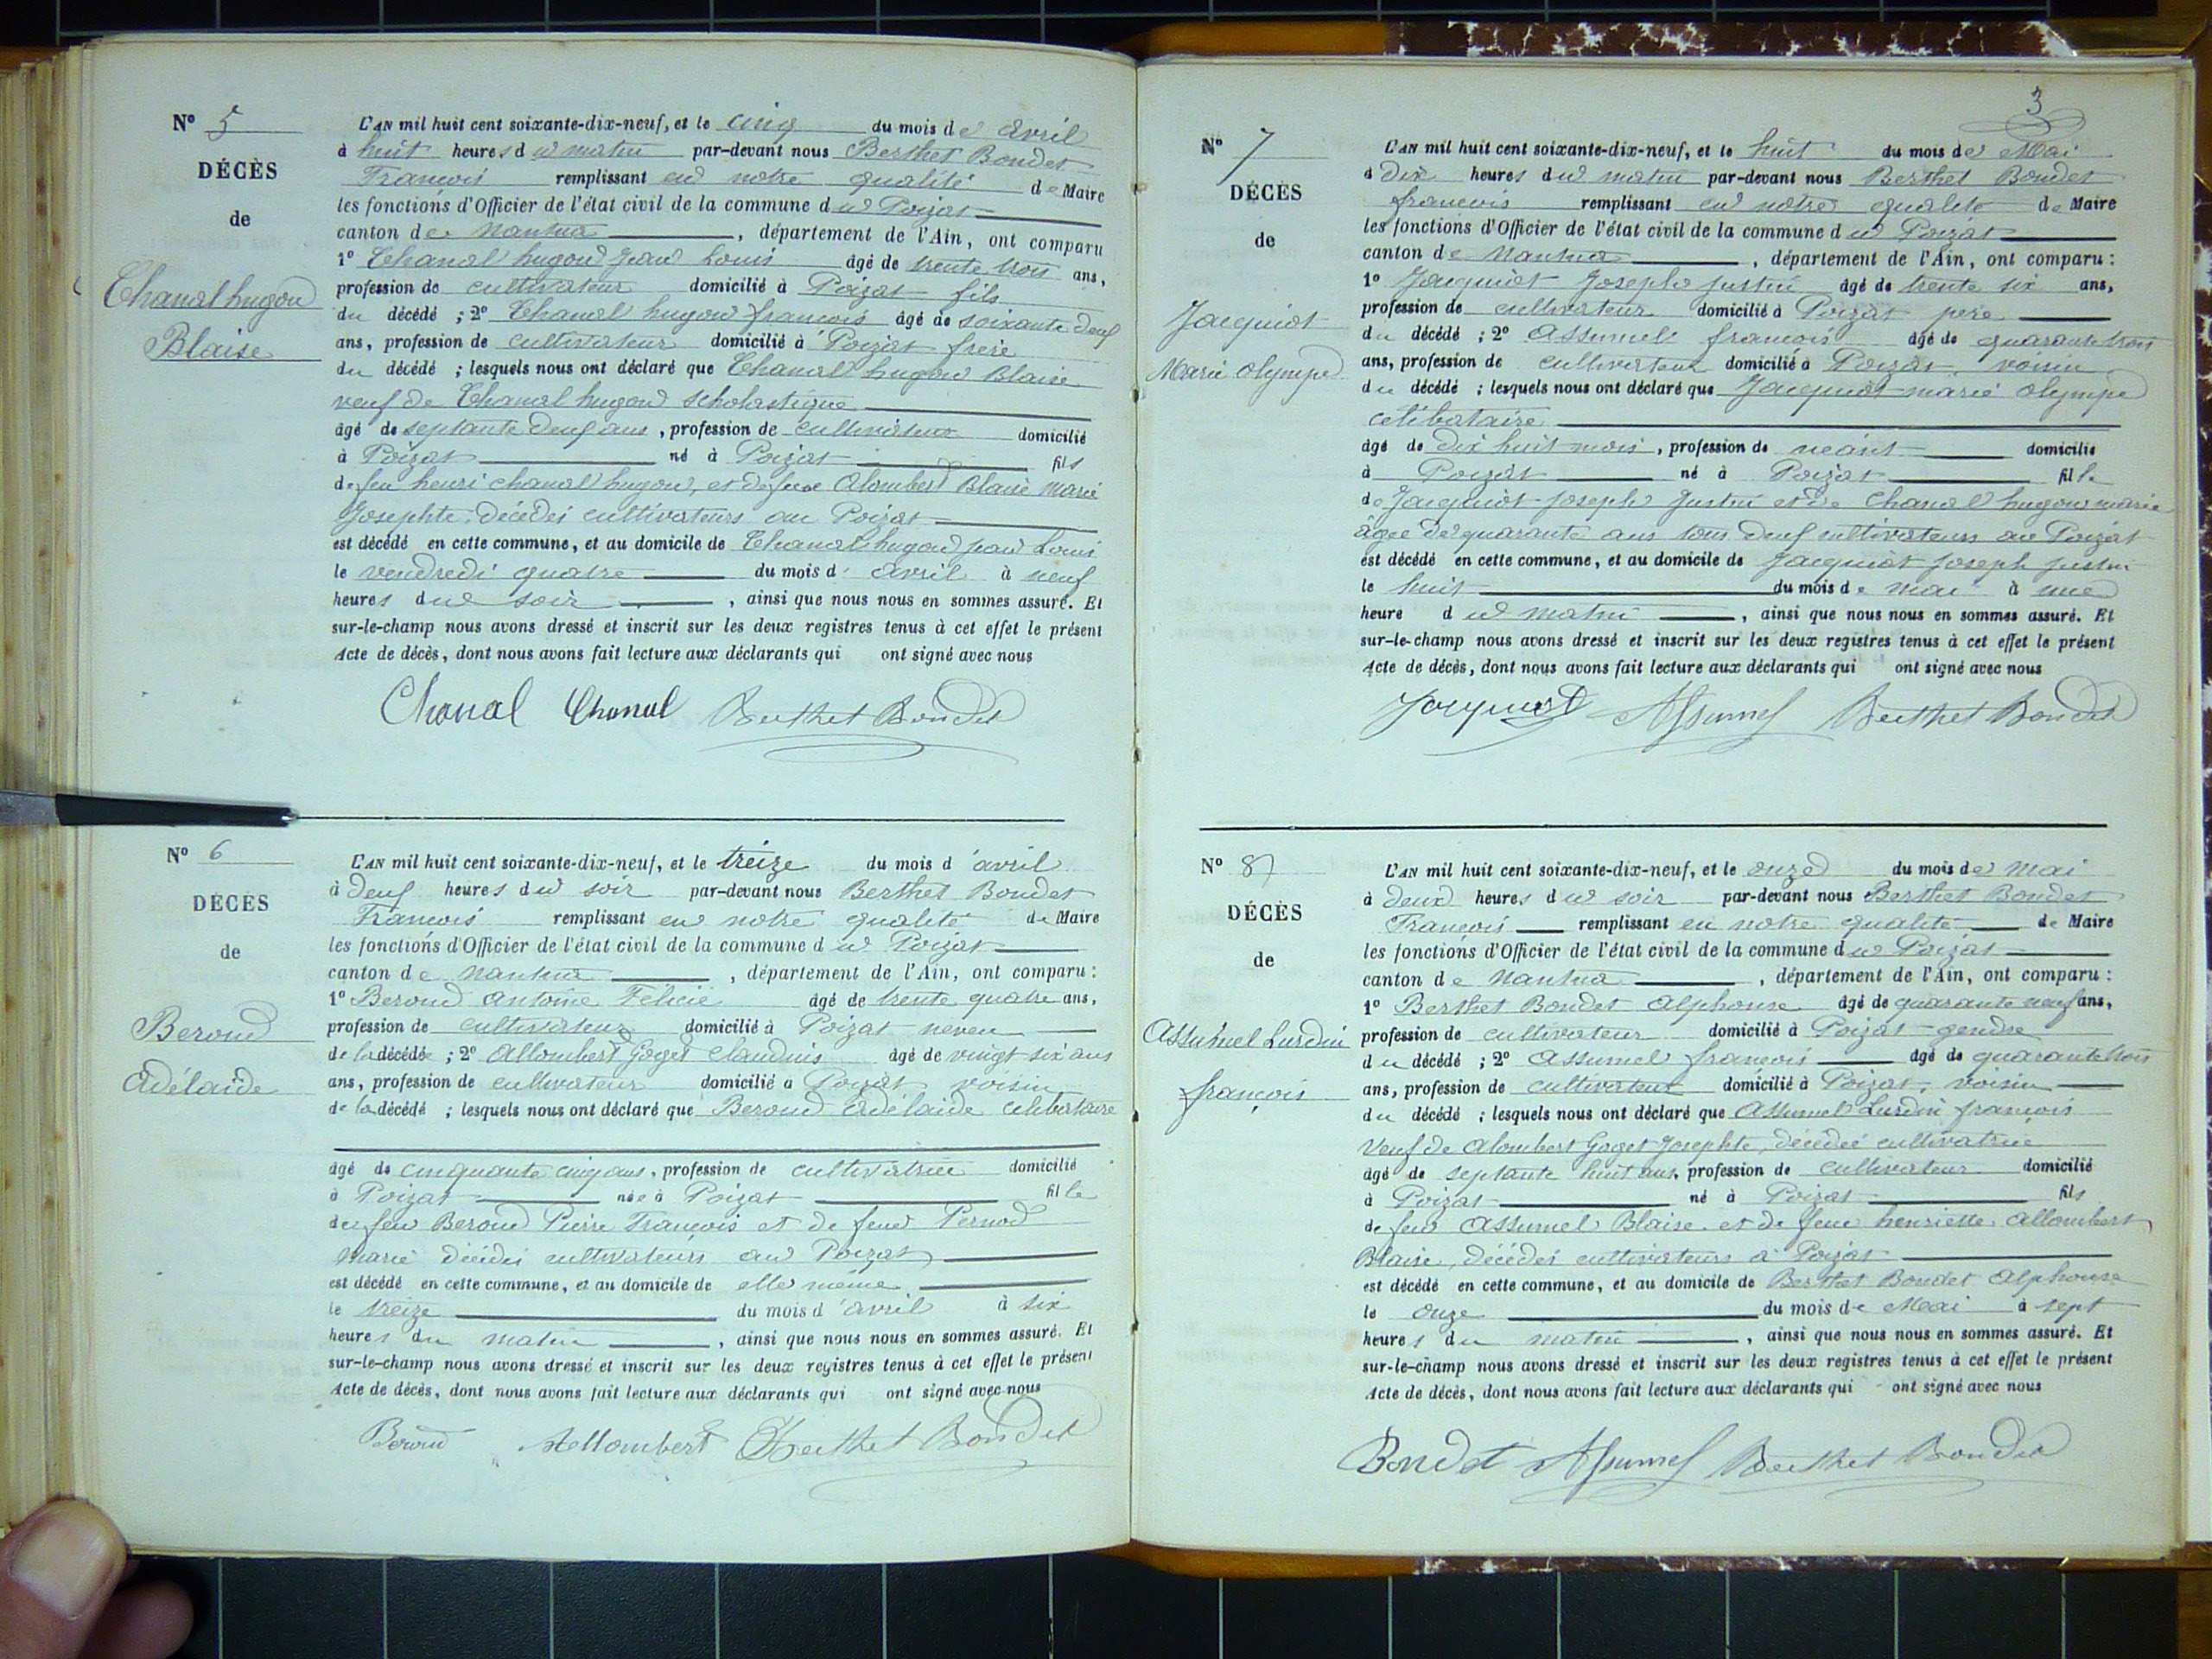 N° 5
DÉCÈS
de
Chanal hugon
Blaise
L'AN mil huit cent soixante-dix-neuf, et le cinq du mois de Avril
à huit heures du matin par-devant nous Berthet Bondet
Francois remplissant en notre qualité de Maire
les fonctions d'Officier de l'état civil de la commune du Poizat
canton de Nantua, département de l'Ain, ont comparu
1° Chanal hugon Jean Louis âgé de trente trois ans,
profession de cultivateur domicilié à Poizat fils
du décédé ; 2° Chanal hugon francois âgé de soixante deuf
ans, profession de cultivateur domicilié à Poizat frere
du décédé ; lesquels nous ont déclaré que Chanal hugon Blaise
veuf de Chanal hugon scholastique
âgé de septante deuf ans, profession de cultivateur domicilié
à Poizat né à Poizat fils
de feu henri chanal hugon, et de feue Alombert Blaise marie
Josephte, décédés cultivateurs au Poizat
est décédé en cette commune, et au domicile de Chanal hugon jean Louis
le vendredi quatre du mois d' avril à neuf
heures du soir, ainsi que nous nous en sommes assuré. Et
sur-le-champ nous avons dressé et inscrit sur les deux registres tenus à cet effet le présent
Acte de décès, dont nous avons fait lecture aux déclarants qui ont signé avec nous
Chanal Chanal Berthet Bondet
N° 6
DÉCÈS
de
Beroud
Adélaide
L'AN mil huit cent soixante-dix-neuf, et le treize du mois d'avril
à deuf heures du soir par-devant nous Berthet Bondet
Francois remplissant en notre qualité de Maire
les fonctions d'Officier de l'état civil de la commune du Poizat
canton de Nantua, département de l'Ain, ont comparu :
1° Beroud Antoine Félicie âgé de trente quatre ans,
profession de cultivateur domicilié à Poizat neveu
de la décédée ; 2° Allombert Goget Claudius âgé de vingt six ans
ans, profession de cultivateur domicilié à Poizat voisin
de la décédé ; lesquels nous ont déclaré que Beroud Adélaide célibataire
âgé de cinquante cinq ans, profession de cultivatrice domicilié
à Poizat née à Poizat fille
de feu Beroud Pierre Francois et de feue Pernod
Marie décédés cultivateurs au Poizat
est décédé en cette commune, et au domicile de elle même
le treize du mois d'avril à six
heures du matin, ainsi que nous nous en sommes assuré. Et
sur-le-champ nous avons dressé et inscrit sur les deux registres tenus à cet effet le présent
Acte de décès, dont nous avons fait lecture aux déclarants qui ont signé avec nous
Beroud Allombert Berthet Bondet
3
N° 7
DÉCÈS
de
Jacquiot
Marie Olympe
L'AN mil huit cent soixante-dix-neuf, et le huit du mois de Mai
à dix heures du matin par-devant nous Berthet Bondet
francois remplissant en notre qualité de Maire
les fonctions d'Officier de l'état civil de la commune du Poizat
canton de Nantua, département de l'Ain, ont comparu :
1° Jacquiot Joseph justin âgé de trente six ans,
profession de cultivateur domicilié à Poizat pere
du décédé ; 2° Assumel francois âgé de quarante trois
ans, profession de cultivateur domicilié à Poizat, voisin
du décédé ; lesquels nous ont déclaré que Jacquiot marie Olympe
célibataire
âgé de dix huit mois, profession de néant domicilié
à Poizat né à Poizat fille
de Jacquiot Joseph Justin et de Chanal hugon marie
âgée de quarante ans tous deuf cultivateurs au Poizat
est décédé en cette commune, et au domicile de Jacquiot Joseph justin
le huit du mois de mai à une
heure du matin, ainsi que nous nous en sommes assuré. Et
sur-le-champ nous avons dressé et inscrit sur les deux registres tenus à cet effet le présent
Acte de décès, dont nous avons fait lecture aux déclarants qui ont signé avec nous
Jacquiot Assumel Berthet Bondet
N° 8
DÉCÈS
de
Assumel Lurdin
françois
L'AN mil huit cent soixante-dix-neuf, et le onze du mois de Mai
à deux heures du soir par-devant nous Berthet Bondet
Francois remplissant en notre qualité de Maire
les fonctions d'Officier de l'état civil de la commune du Poizat
canton de Nantua, département de l'Ain, ont comparu :
1° Berthet Bondet Alphonse âgé de quarante neuf ans,
profession de cultivateur domicilié à Poizat gendre
du décédé ; 2° Assumel francois âgé de quarante trois
ans, profession de cultivateur domicilié à Poizat, voisin
du décédé ; lesquels nous ont déclaré que Assumel Lurdin francois
Veuf de Alombert Goget Josephte, décédée cultivatrice
âgé de septante huit ans, profession de cultivateur domicilié
à Poizat né à Poizat fils
de feu Assumel Blaise et de feue henriette Allombert
Blaise, décédés cultivateurs à Poizat
est décédé en cette commune, et au domicile de Berthet Bondet Alphonse
le onze du mois de Mai à sept
heures du matin, ainsi que nous nous en sommes assuré. Et
sur-le-champ nous avons dressé et inscrit sur les deux registres tenus à cet effet le présent
Acte de décès, dont nous avons fait lecture aux déclarants qui ont signé avec nous
Bondet Assumel Berthet Bondet